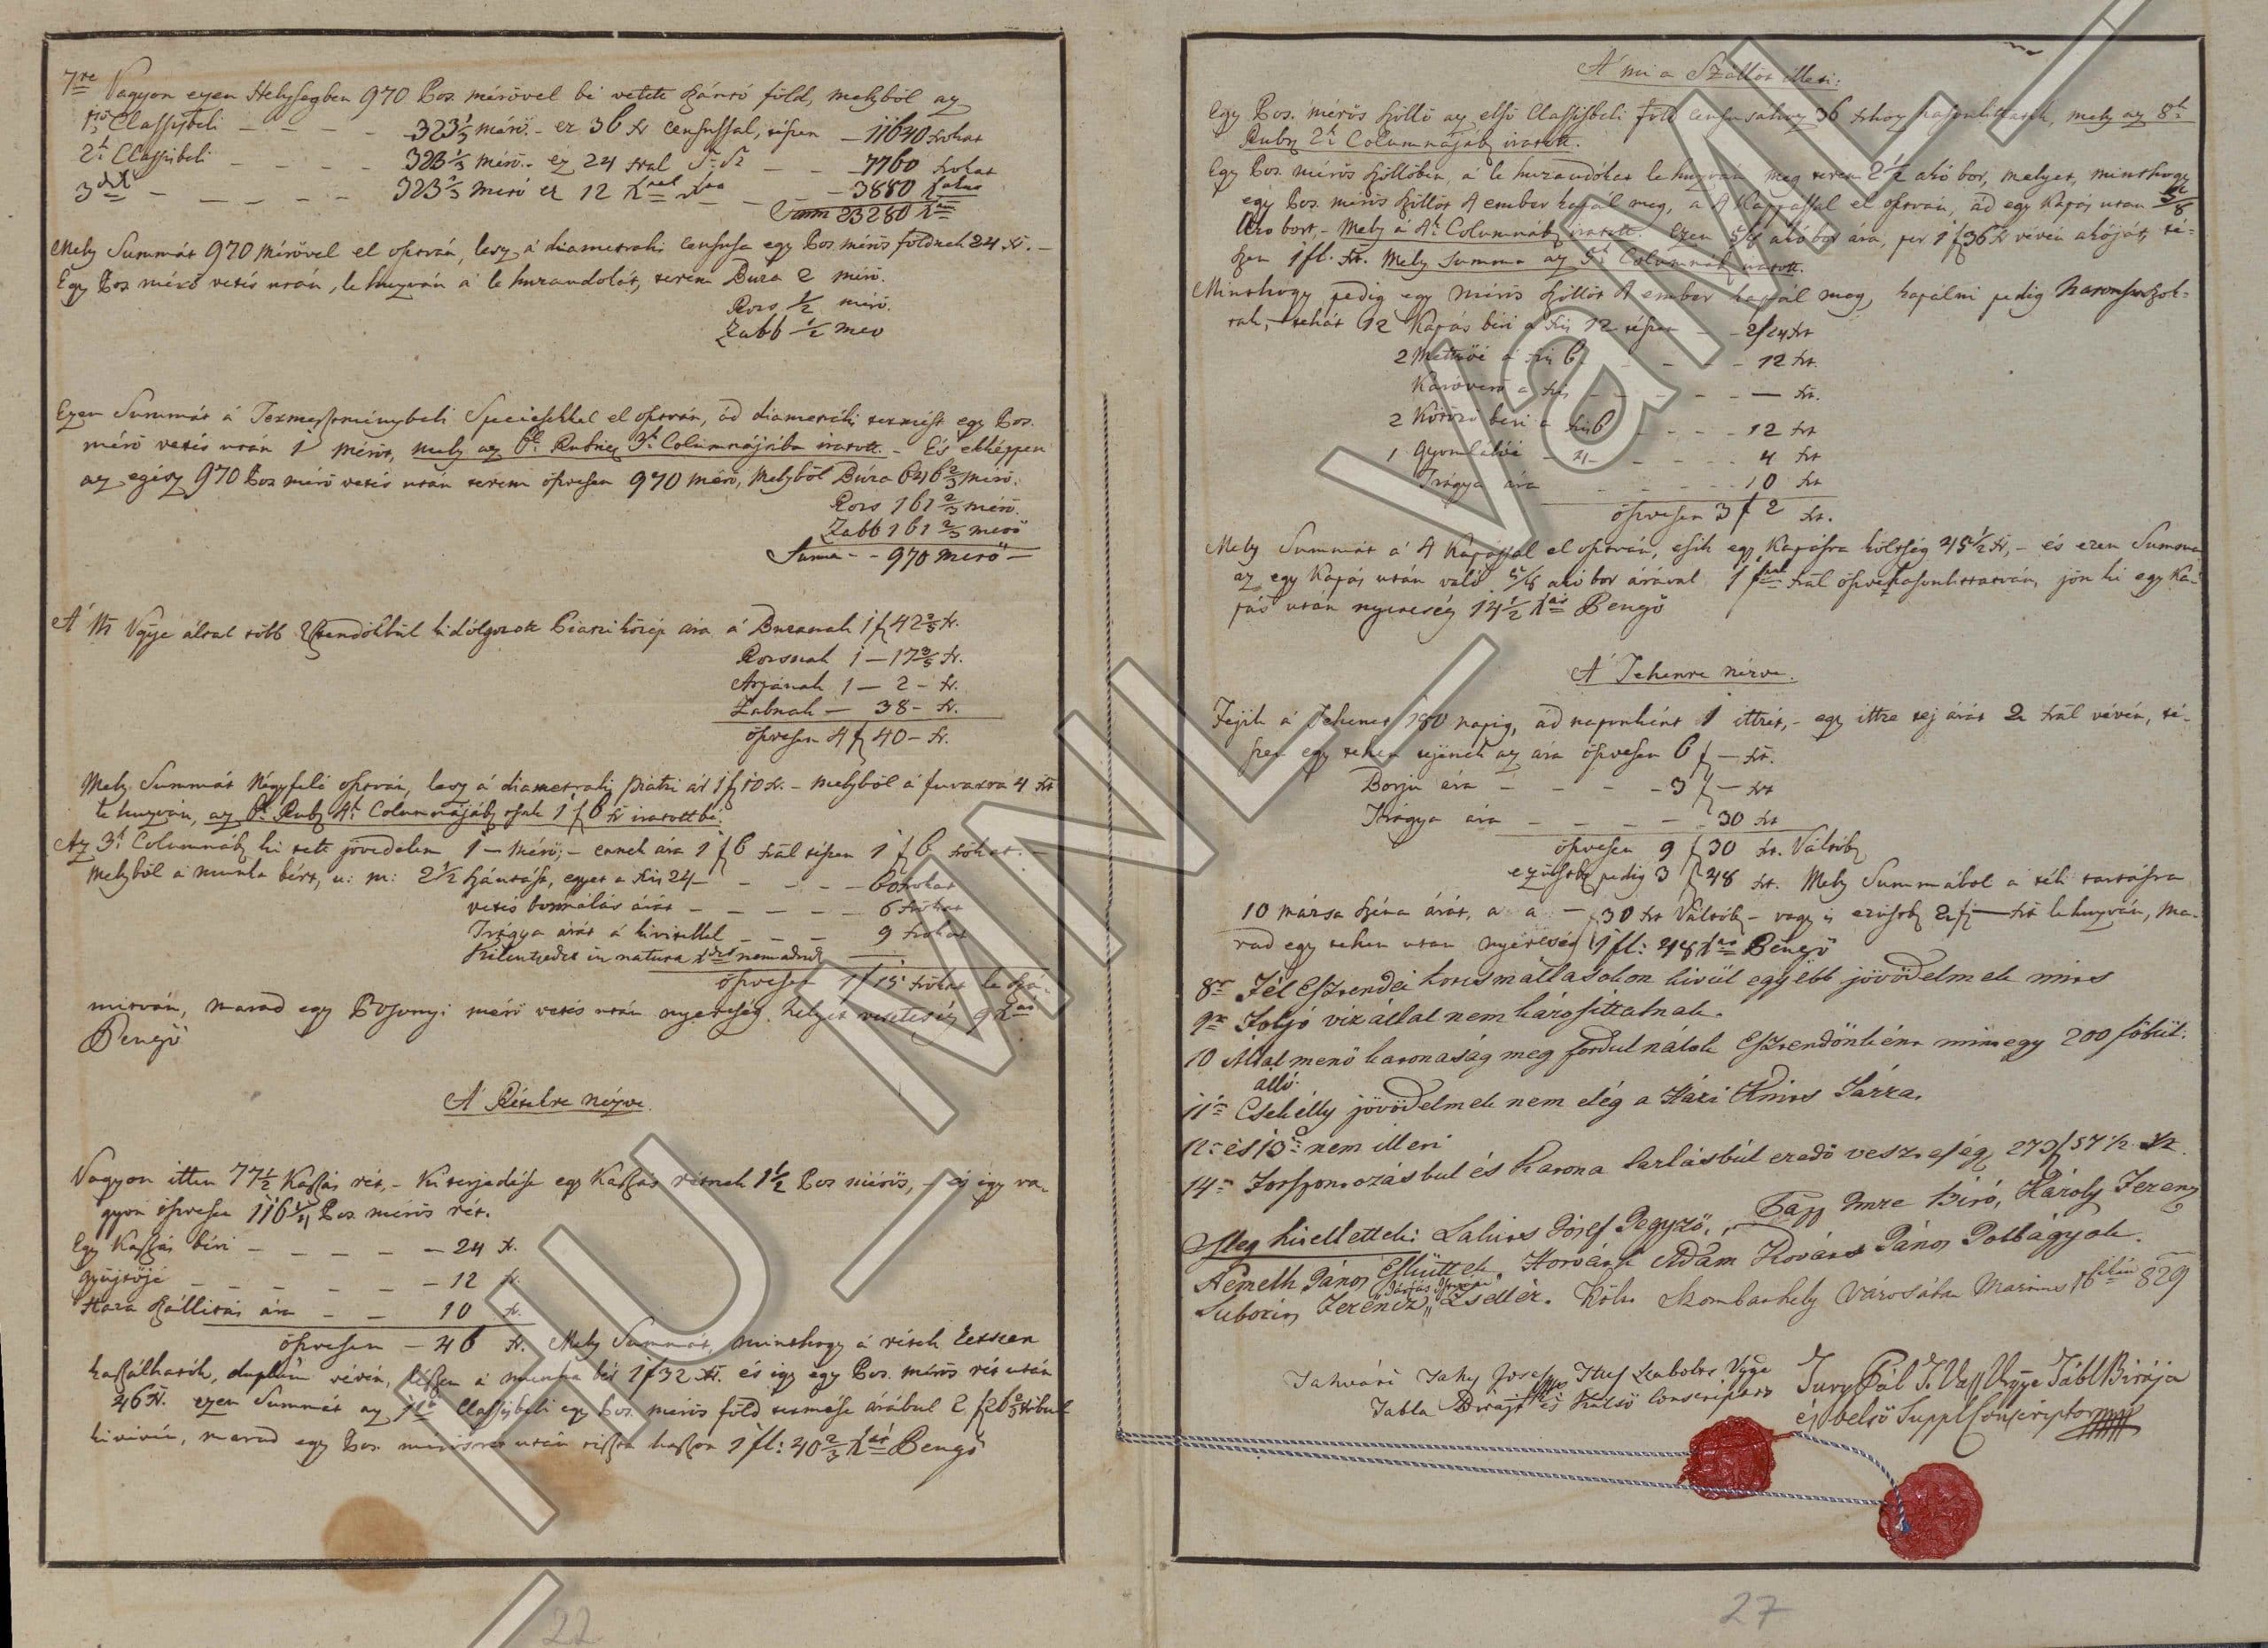 7re Vagyon ezen Helysegben 970 Pos. mérővel bé vetett szántó föld, melyből az
1ső Classisbeli – – – – 323⅓ mérő – ez 36 xr censussal, tészen – 11640 xrokat
2k Classisbeli – – – – 323⅓ mérő – ez 24 xral – – 7760 xrokat
3dik – – – – – 323⅓ mérő ez 12 – – 3880
Summ 23280
Mely Summát 970 mérővel el osztván, lesz a' diametralis censusa egy Pos. mérős földnek 24 xr. –
Egy Pos mérő vetés után, le huzván a' le huzandolót, terem Buza 2 mérő.
Rozs ½ mérő.
Zabb ½ mérő
Ezen Summát á Termesztménybeli Speciesekkel el osztván, ád diametralis termést egy Pos.
mérő vetés után 1 mérőt, mely az 6k Rubrica 3k Columnájába iratott. – És ekképpen
az egész 970 Pos mérő vetés után terem öszvesen 970 mérő, melyből Búza 646⅔ mérő.
Rozs 161⅔ mérő.
Zabb 161⅔ mérő
Suma – – 970 mérő –
A' Vgÿe által több Esztendőkbül kidolgozott Piaczi közép ára á Buzanak 1 f 42⅗ xr.
Rozsnak 1 – 17⅗ xr.
Árpának 1 – 2 – xr.
Zabnak – 38 – xr.
öszvesen 4 f 40 – xr.
Mely Summát Négyfelé osztván, lesz á diametralis piatzi ár 1 f 10 xr. – melyből á fuvarra 4 xr
le huzván, az 6k Rub 4k Columnájáb csak 1 f 6 xr iratott bé.
Az 3k Columnáb ki tett jövedelem 1 – mérő; – ennek ára 1 f 6 xrál tészen 1 f 6 xrokat. –
Melyből á munka bért, u: m: 2½ szántást, egyet a xr 24 – – – – – 60 xrokat
vetés boronálás árát – – – – – 6 xrokat
Trágya árát á kivitellel – – – 9 xrokat
Kilentzedet in natura nem adnak –
öszvesen 1 f 15 xrokat le szá-
mitván, marad egy Posonyi mérő vetés után nyereség helyet veszteség 9
Pengő
A' Rétekre nézve.
Vagyon itten 77½ Kaszás rét, – Kiterjedése egy Kaszás rétnek 1½ Pos mérős, – és igy va-
gyon öszvesen 116¼ Pos. mérős rét.
Egy Kaszás béri – – – – – 24 xr.
gyűjtőjé – – – – – 12 xr.
Haza szállitás ára – – 10 xr.
öszvesen – 46 xr. Mely Summát, minthogy á rétek kétszer
kaszálhatók, duplum vévén, lészen á munka bér 1 f 32 xr. és igy egy Pos. mérős rét után
46 xr. ezen Summát az 1ső Classisbeli egy Pos. mérős föld termése árábul 2 f 26⅔ xrbul
kivévén, marad egy Pos. mérős rét után tiszta haszon 1 fl: 40⅔ Pengő
A' mi a Szőllőt illeti:
Egy Pos. mérős szőllő az első Classisbeli föld censusához 36 xrhoz hasonlittatik, mely az 8k
Rubr 2k Columnájáb iratott.
Egy Pos. mérős szőllőben, á le huzandókat le huzván meg terem 2½ akó bor, melyet, minthogy
egy Pos. mérős szőllőt 4 ember kapál meg, a 4 Kapással el osztván, ád egy kapás után 5/8
akó bort, – Mely á 4k Columnáb iratott. Ezen 5/8 akó bor ára, per 1 f 36 xr vévén akóját, té-
szen 1 fl. xr. Mely summa az 5k Columnáb iratott.
Minthogy pedig egy mérős szőllőt 4 ember kapál meg, kapálni pedig háromszor szok-
tak, tehát 12 Kapás béri a xr 12 tészen – – 2 f 24 xr
2 Mettszői á xr 6 – – – – 12 xr.
Karóverő a xr – – – – – xr.
2 Kötöző béri a xr 6 – – – 12 xr
1 Gyomlálói – 4 – – – – 4 xr
Trágya ára – – – – 10 xr
öszvesen 3 f 2 xr.
Mely Summát á 4 Kapással el osztván, esik egy Kapásra költség 45½ xr, – és ezen Summa
az egy Kapás után való 5/8 akó bor árával 1 f öszve hasonlittatván, jön ki egy Ka-
pás után nyereség 14½ Pengő
A' Tehenre nézve.
Fejik á Tehenet 180 napig, ád naponként 1 ittzét, – egy ittze tej árát 2 xrál vévén, té-
szen egy tehen tejének az ára öszvesen 6 f – xr.
Borju ára – – – – 3 f – xr
Trágya ára – – – – – 30 xr
öszvesen 9 f 30 xr. Váltób
ezüstb pedig 3 f 48 xr. Mely Summábol a téli tartásra
10 mázsa széna árát, a – f 30 xr Váltób – vagy is ezüstb 2 f – xr le huzván, ma-
rad egy tehen után nyereség 1 fl: 48 Pengő
8or Fél Esztendei korcsmállásokon kivül egyébb jövödelmek nints
9er Folyó viz által nem károsittatnak.
10 Által menő katonaság meg fordul nálok Esztendőnként mint egy 200 főbül.
álló.
11er Csekélly jövödelmek nem elég a Házi Kints Tárra.
12er és 13 nem illeti
14er Forspontozásbul és Katona tartásbúl eredő veszteség 279 f 57½ xr.
Meg hitelltettek: Lakits Jósef Jegyző, Papp Imre Biró, Károly Ferenz
Németh János Esküttek, Horváth Ádám Kováts János Polbágyok.
Suborits Ferentz Zsellér. Költ Szombathely Várossában Martius 16dikán 829
Jahy Josef Szabolts Vgye
Tabla Birája és Külső Conscriptor
Pál T. Vass Vgÿe Tábl Birája
és belső Suppl Conscriptor
22
27
HU_MNL_VaML_